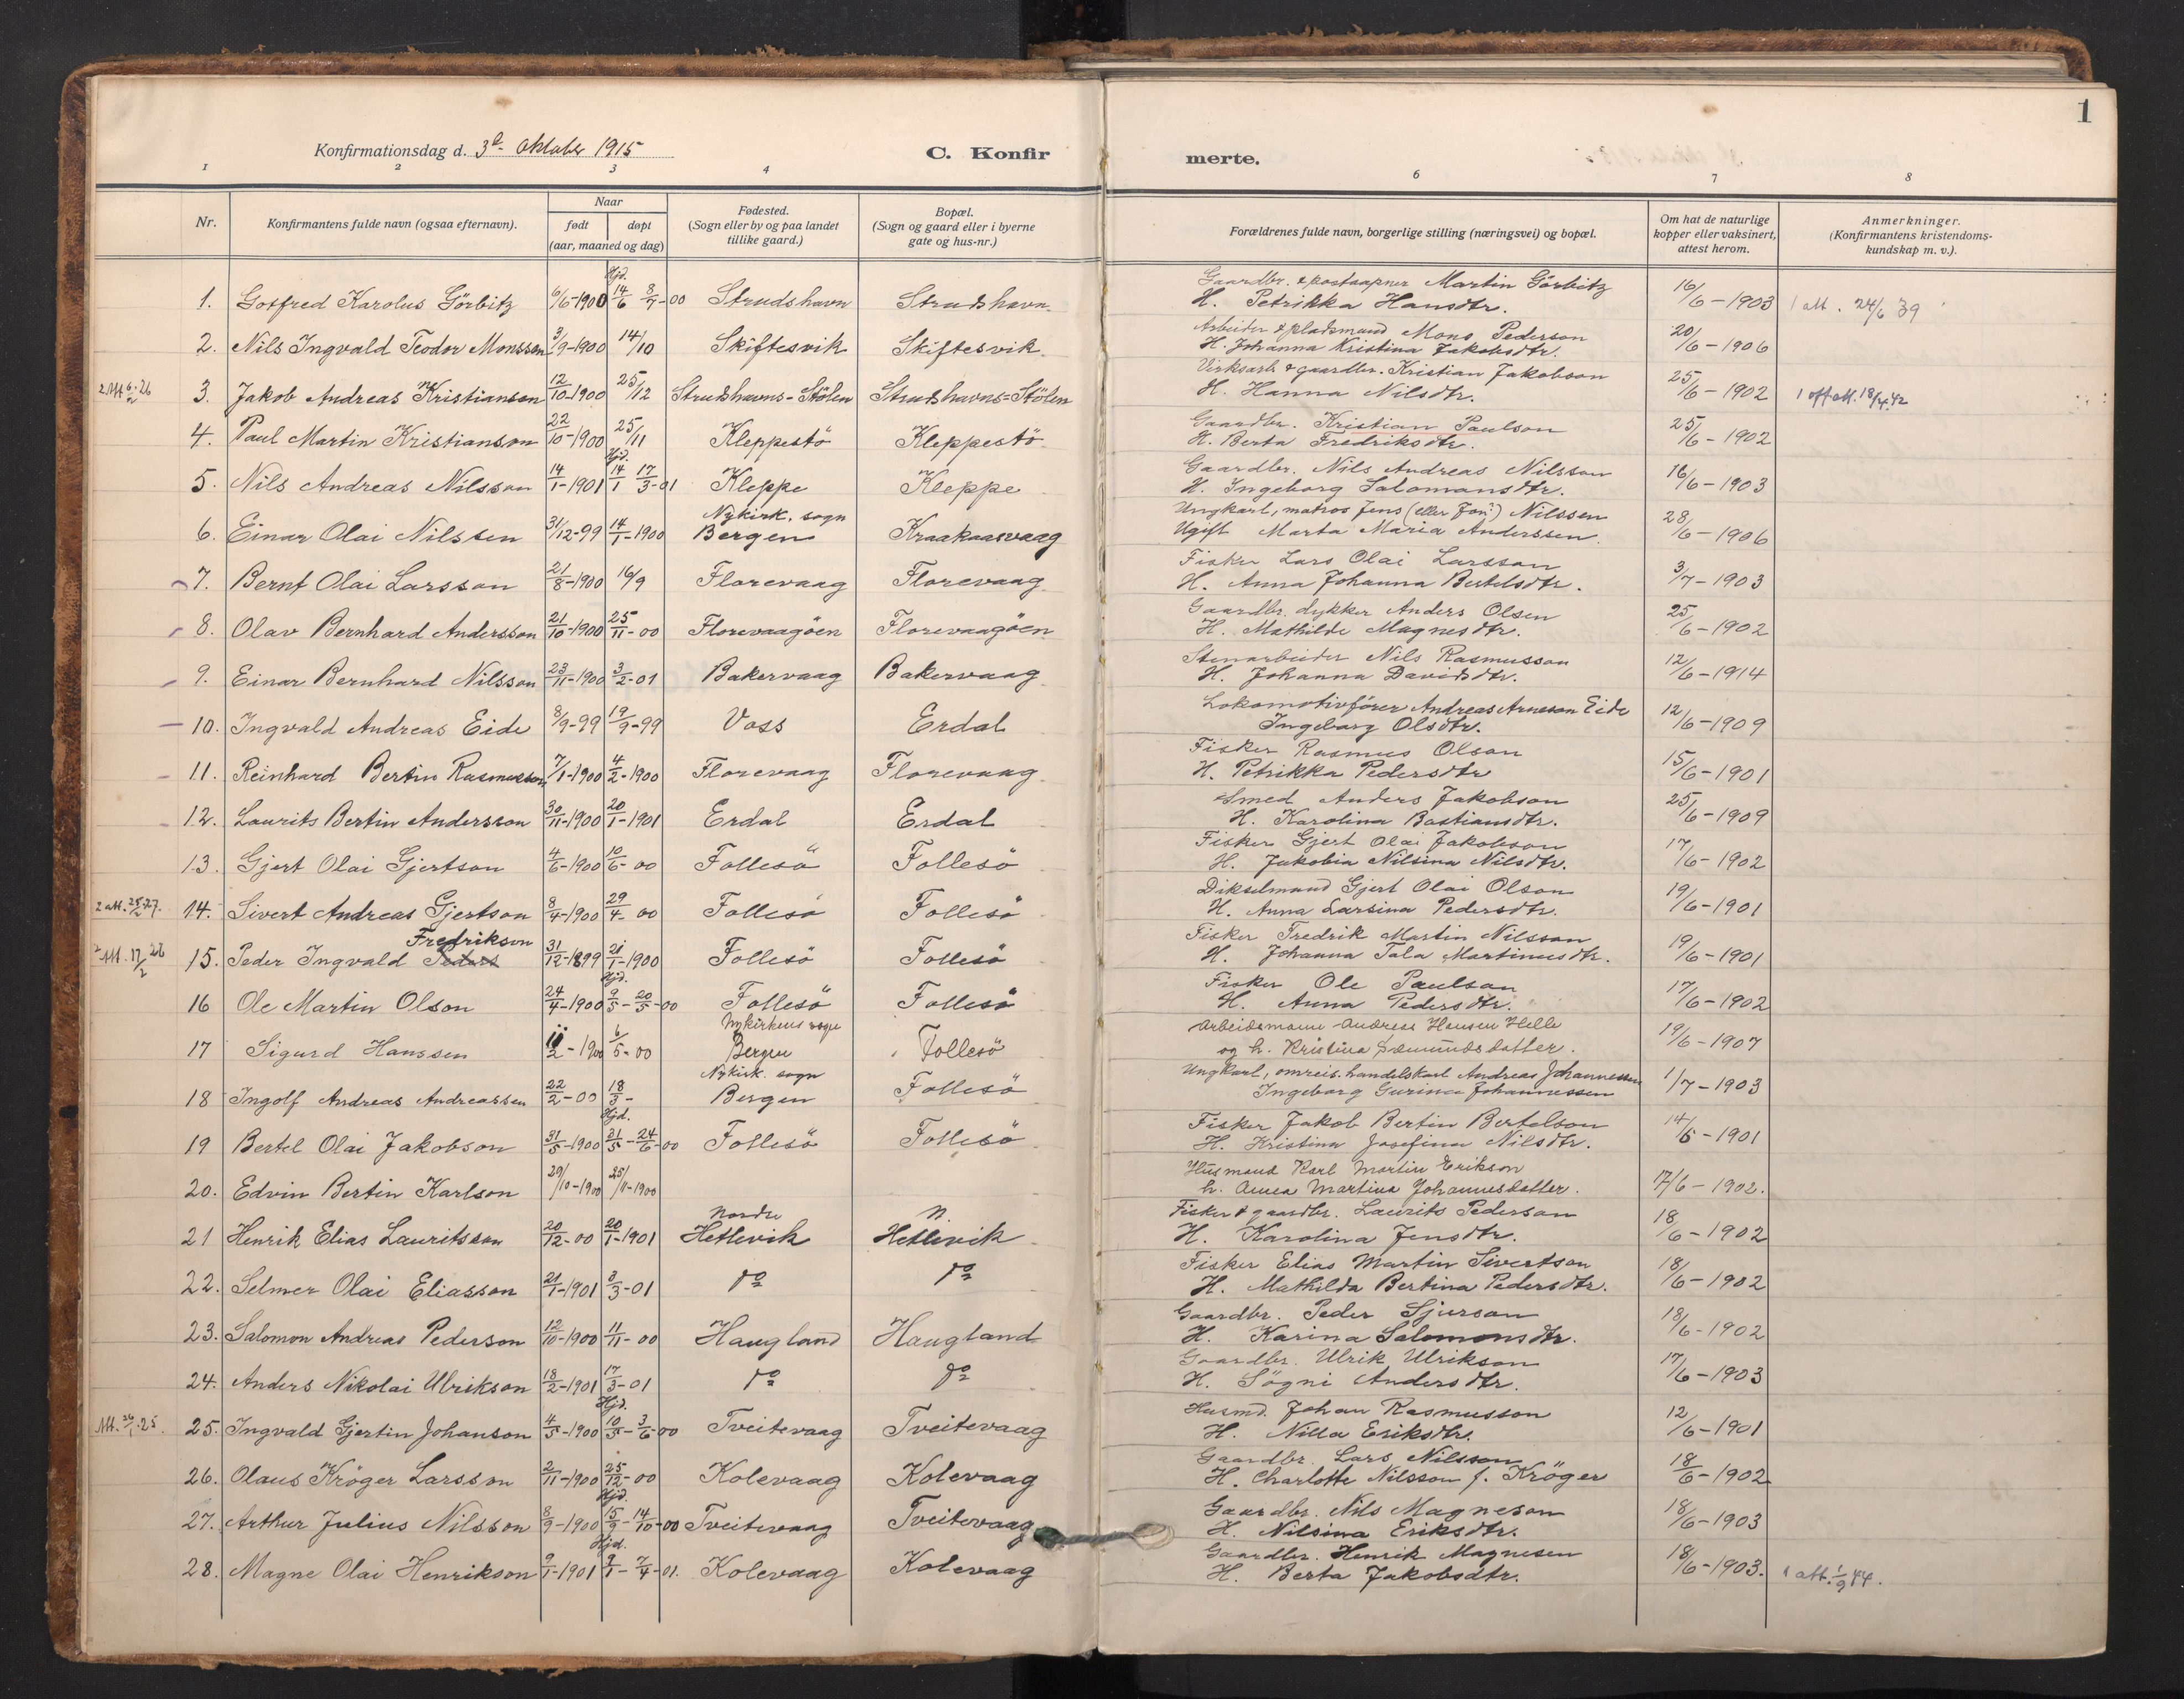 1
Konfirmationsdag d. 3d- Oktober 1915
C. Konfir
merte.
1 2 3 4 6 7 8
Nr.
Konfirmantens fulde navn (ogsaa efternavn).
Naar
født døpt
(aar, maaned og dag)
Fødested.
(Sogn eller by og paa landet
tillike gaard.)
Bopæl.
(Sogn og gaard eller i byerne
gate og hus-nr.)
Forældrenes fulde navn, borgerlige stilling (næringsvei) og bopæl.
Om hat de naturlige
kopper eller vaksinert,
attest herom.
Anmerkninger.
(Konfirmantens kristendoms-
kundskap m. v.).
Hjd.
1. Gotfred Karolus Görbitz 6/6-1900 14/6 8/7-00 Strudshavn Strudshavn.
Gaardbr. & postaapner Martin Görbitz
H. Petrikka Hansdtr. 16/6-1903 1 att. 24/6 39
2. Nils Ingvald Teodor Monsson 3/9-1900 14/10 Skiftesvik Skiftesvik.
Arbeider & pladsmand Mons Pederson
H. Johanna Kristina Jakobsdtr. 20/6-1906
2 Att 6/2-26 3. Jakob Andreas Kristianson 12/10-1900 25/12 Strudshavns-Stölen Strudshavns-Stölen
Virksarb. & gaardbr. Kristian Jakobson
H. Hanna Nilsdtr. 25/6-1902 1 off att. 18/4.42
4. Paul Martin Kristianson 22/10-1900 25/11 Kleppestö Kleppestö
Gaardbr. Kristian Paulson
H. Berta Fredriksdtr. 25/6-1902
Hjd.
5. Nils Andreas Nilsson 14/1-1901 14/1 17/3-01 Kleppe Kleppe
Gaardbr. Nils Andreas Nilsson
H. Ingeborg Salomonsdtr. 16/6-1903
Nykirk. sogn
6. Einar Olai Nilssen 31/12-99 14/1-1900 Bergen Kraakaasvaag
Ungkarl, matros Jens (eller Jon?) Nilssen
Ugift Marta Maria Anderssen. 28/6-1906
7. Bernt Olai Larsson 21/8-1900 16/9 Florevaag Florevaag
Fisker Lars Olai Larsson
H. Anna Johanna Bertelsdtr. 3/7-1903
8. Olav Bernhard Andersson 21/10-1900 25/11-00 Florevaagöen Florevaagöen
Gaardbr. dykker Anders Olsen
H. Mathilde Magnesdtr. 25/6-1902
9. Einar Bernhard Nilsson 23/11-1900 3/2-01 Bakervaag Bakervaag
Stenarbeider Nils Rasmusson
H. Johanna Davidsdtr. 12/6-1914
10. Ingvald Andreas Eide 8/9-99 19/9-99 Voss Erdal
Lokomotivförer Andreas Arneson Eide
Ingeborg Olsdtr. 12/6-1909
11. Reinhard Bertin Rasmusson 7/1-1900 4/2-1900 Florevaag Florevaag
Fisker Rasmus Olson
H. Petrikka Pedersdtr 15/6-1901
12. Laurits Bertin Andersson 30/11-1900 20/1-1901 Erdal Erdal
Smed Anders Jakobson
H. Karolina Bastiansdtr. 25/6-1909
13. Gjert Olai Gjertson 4/6-1900 10/6-00 Follesö Follesö
Fisker Gjert Olai Jakobson
H. Jakobia Nilsina Nilsdtr. 17/6-1902
2 att. 25/2 27. 14. Sivert Andreas Gjertson 8/4-1900 29/4-00 Follesö Follesö
Dikselmand Gjert Olai Olson
H. Anna Larsina Pedersdtr. 19/6-1901
Fredrikson
2 Att. 17/2 26 15. Peder Ingvald Peders 31/12-1899 21/1-1900 Follesö Follesö
Fisker Fredrik Martin Nilsson
H. Johanna Tala Martinusdtr. 19/6-1901
Hjd.
16 Ole Martin Olson 24/4-1900 9/5-20/5-00 Follesö Follesö
Fisker Ole Paulson
H. Anna Pedersdtr. 17/6-1902
Nykirkens sogn
17 Sigurd Hanssen 11/2-1900 6/5-00 Bergen Follesö
Arbeidsmann Andreas Hansen Helle
og h. Kristina Sæmundsdatter. 19/6-1907
Nykirk. sogn
18 Ingolf Andreas Andreassen 22/2-00 18/3- Bergen Follesö
Ungkarl, omreis. handelskarl Andreas Johannessen
Ingeborg Gurina Johannessen 1/7-1903
Hjd.
19 Bertel Olai Jakobson 31/5-1900 31/5-24/6-00 Follesö Follesö
Fisker Jakob Bertin Bertelson
H. Kristina Josefina Nilsdtr. 14/6-1901
20. Edvin Bertin Karlson 29/10-1900 25/11-1900
Husmand Karl Martin Erikson
h. Anna Martina Johannesdatter. 17/6-1902.
Nordre N.
21 Henrik Elias Lauritsson 20/12-00 20/1-1901 Hetlevik Hetlevik
Fisker & gaardbr. Laurits Pederson
H. Karolina Jensdtr. 18/6-1902
22. Selmer Olai Eliasson 21/1-1901 3/3-01 do do
Fisker Elias Martin Sivertson
H. Mathilda Bertina Pedersdtr. 18/6-1902
23. Salomon Andreas Pederson 12/10-1900 11/11-00 Haugland Haugland
Gaardbr. Peder Sjurson
H. Karina Salomonsdtr. 18/6-1902
24. Anders Nikolai Ulrikson 18/2-1901 17/3-01 do do
Gaardbr. Ulrik Ulrikson
H. Sögni Andersdtr. 17/6-1903
Hjd.
Att. 26/1.25. 25. Ingvald Gjertin Johanson 4/5-1900 10/5-3/6-00 Tveitevaag Tveitevaag
Husmd. Johan Rasmusson
H. Nilla Eriksdtr. 12/6-1901
26. Olaus Kröger Larsson 2/11-1900 25/12-00 Kolevaag Kolevaag
Gaardbr. Lars Nilsson
H. Charlotte Nilsson f. Kröger 18/6-1902
Hjd.
27. Arthur Julius Nilsson 8/9-1900 15/9-14/10-00 Tveitevaag Tveitevaag
Gaardbr. Nils Magneson
H. Nilsina Eriksdtr. 18/6-1903
Hjd.
28. Magne Olai Henrikson 9/1-1901 9/1-7/4-01. Kolevaag Kolevaag
Gaardbr. Henrik Magnesen
H. Berta Jakobsdtr. 18/6-1903. 1 att. 1/9 44.